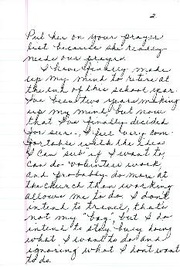 2
Put her on your prayer
list because she really
needs our prayers.
I have finally made
up my mind to retire at
the end of this school year.
I've been two years making
up my mind, but now
that I've finally decided
for sure, I feel very com-
fortable with the idea.
I can sub if I want to,
can do volunteer work
and probably do more at
the church than working
allows me to do. I don't
intend to travel, that's
not my "bag", but I do
intend to stay busy doing
what I want to do and
ignoring what I don't want
to do.